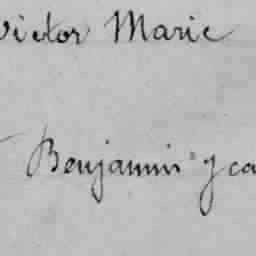 Victor Marie
Benjamin Jea